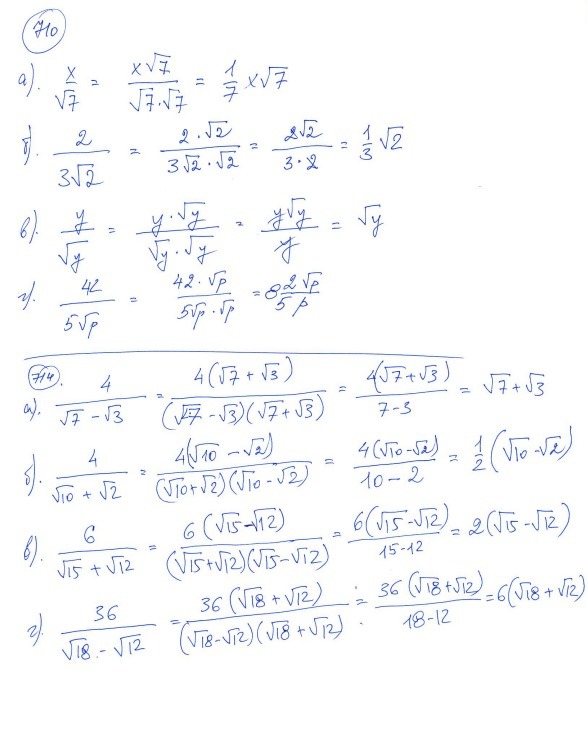 710
а). x/√7 = x√7/√7·√7 = 1/7 x√7
б). 2/3√2 = 2·√2/3√2·√2 = 2√2/3·2 = 1/3 √2
в). y/√y = y·√y/√y·√y = y√y/y = √y
г). 42/5√p = 42·√p/5√p·√p = 8 2√p/5 p
714.
а). 4/√7-√3 = 4(√7+√3)/(√7-√3)(√7+√3) = 4(√7+√3)/7-3 = √7+√3
б). 4/√10+√2 = 4(√10-√2)/(√10+√2)(√10-√2) = 4(√10-√2)/10-2 = 1/2(√10-√2)
в). 6/√15+√12 = 6(√15-√12)/(√15+√12)(√15-√12) = 6(√15-√12)/15-12 = 2(√15-√12)
г). 36/√18-√12 = 36(√18+√12)/(√18-√12)(√18+√12) = 36(√18+√12)/18-12 = 6(√18+√12)